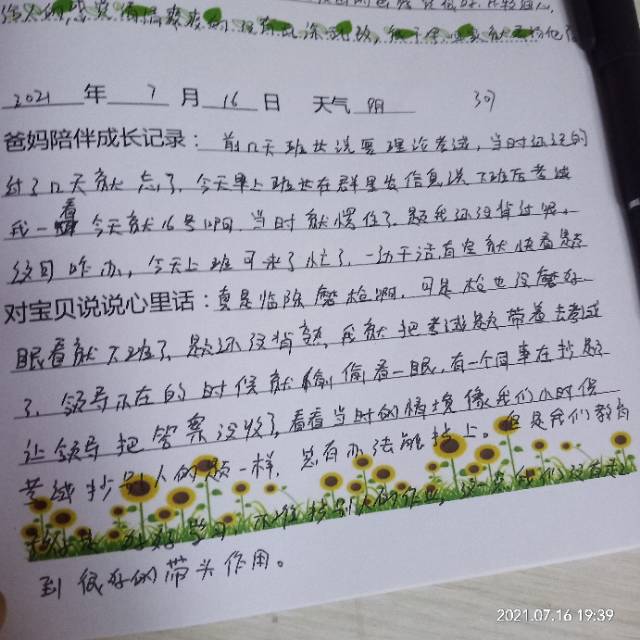 2021 年 7 月 16 日 天气 阴
爸妈陪伴成长记录：前几天班长说要理论考试，当时还记的
过了几天就忘了，今天早上班长在群里发信息说下班后考试
我一看今天就16号啊，当时就愣住了，题我还没背过呢，
这可咋办，今天上班可来了忙了，一边干活有空就快看题
对宝贝说说心里话：真是临阵磨枪啊，可是枪也没磨好
眼看就下班了，题还没背熟，我就把考试题带着去考试
了，领导不在的时候就偷偷看一眼，有一个同事在抄题
让领导把答案没收了，看看当时的情境像我们小时候
考试抄别人的题一样，总有办法能抄上。但是我们教育
孩子 好好学习，不准抄别人的作业，
到很好的带头作用。
2021.07.16 19:39